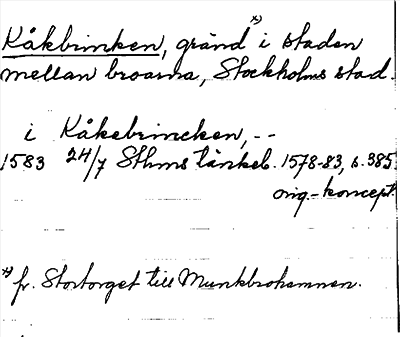 Kåkbrinken, gränd x) i staden
mellan broarna, Stockholms stad.
i Kåkebrincken, --
1583 24/7 Sthms tänkeb. 1578-83, s. 385.
orig.-koncept.
x) fr. Stortorget till Munkbrohamnen.